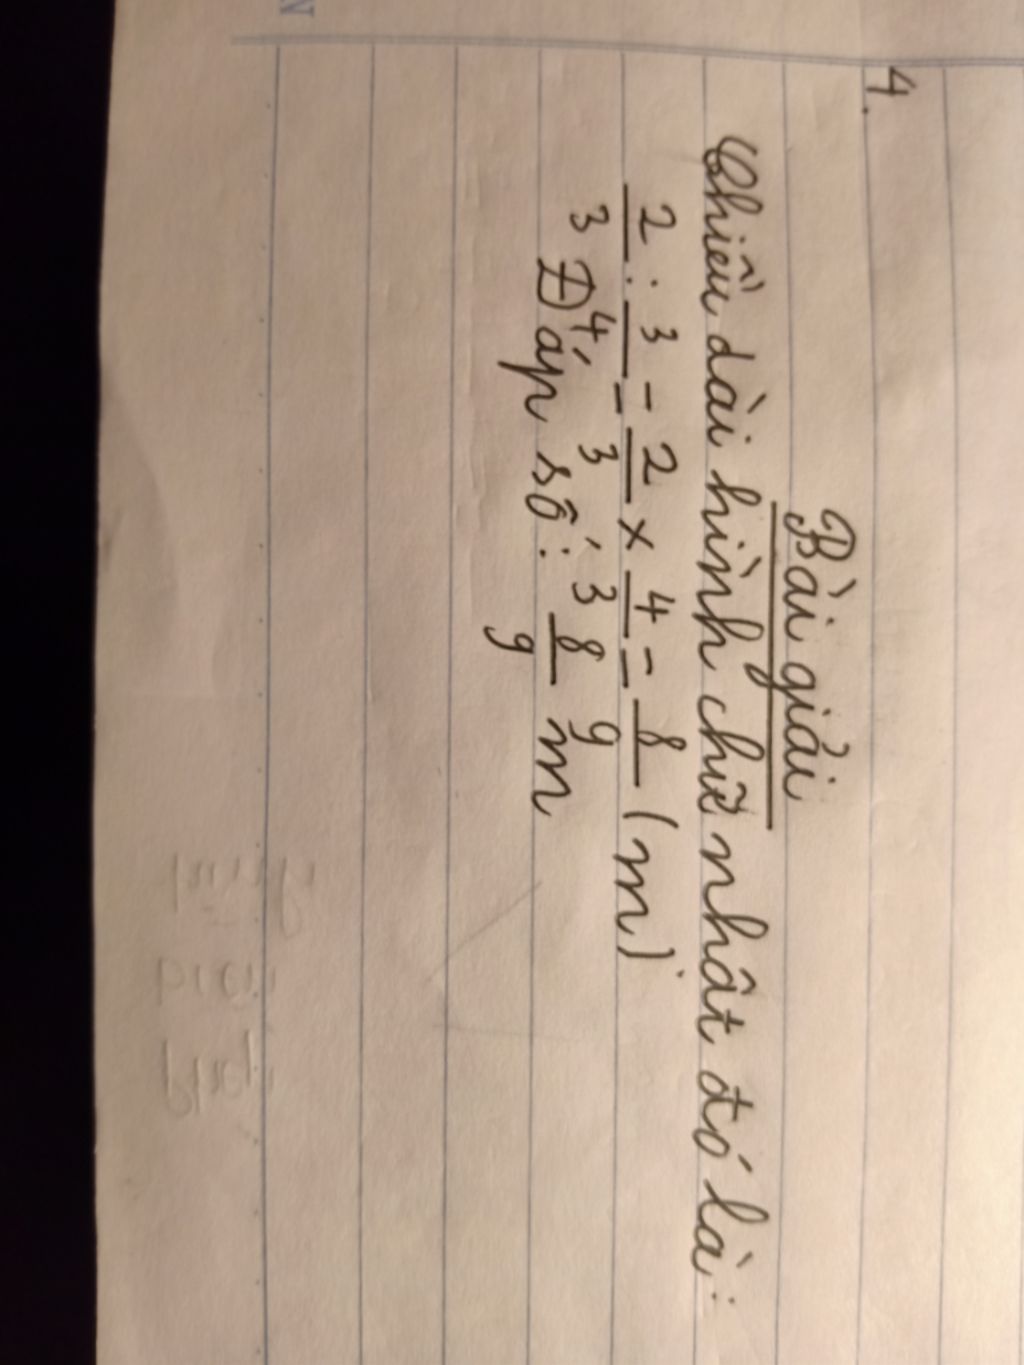 4.
Bài giải
Chiều dài hình chữ nhật đó là:
2/3 : 3/4 = 2/3 × 4/3 = 8/9 (m)
Đáp số: 8/9 m